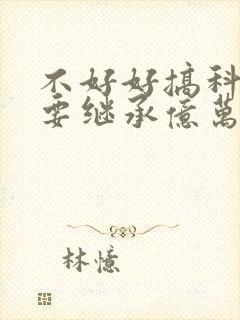 不好好搞科
要继承億萬
林憶